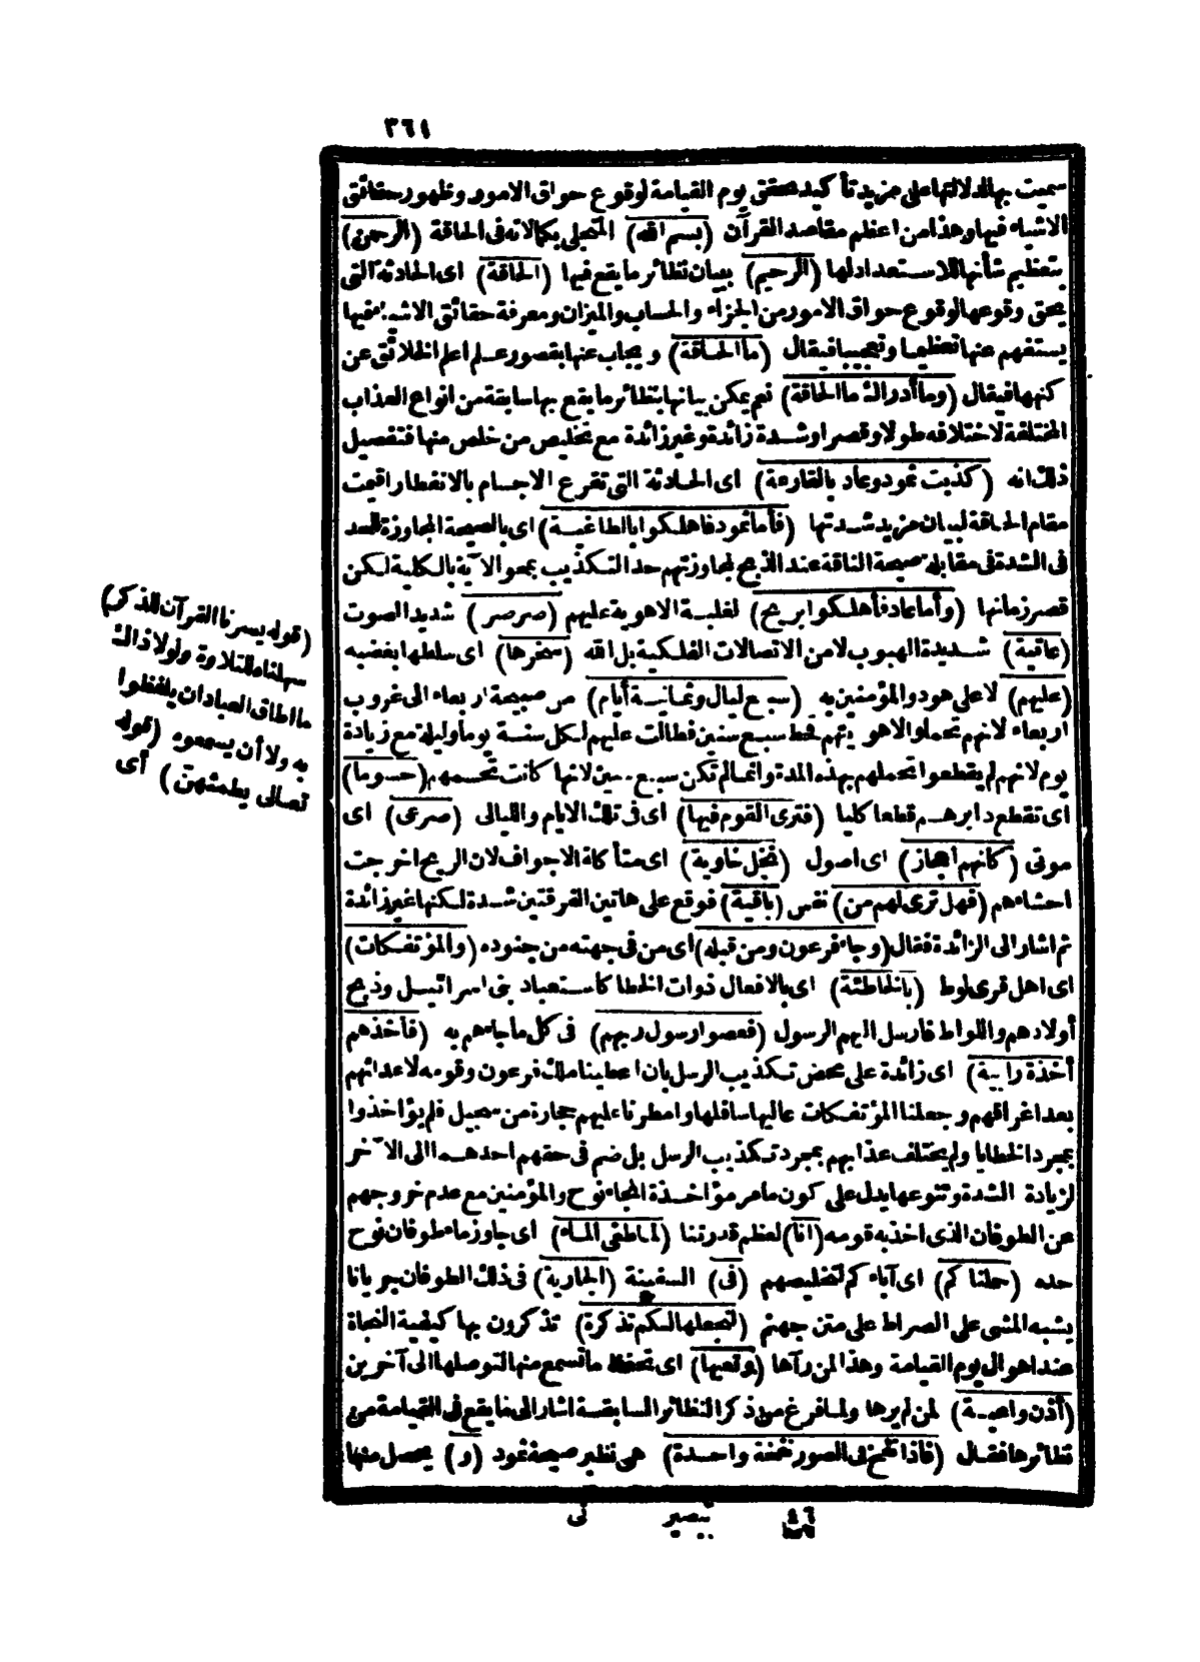 ٣٦١
سميت بها لدلالتها على مزيد تأكيد تحقق يوم القيامة لوقوع حواق الامور وظهور حقائق
الاشياء فيها وهذا من اعظم مقاصد القرآن (بسم الله) المتجلى بكمالاته فى الحاقة (الرحمن)
بتعظيم شأنها للاستعداد لها (الرحيم) ببيان نظائر ما يقع فيها (الحاقة) اى الحادثة التى
يحق وقوعها لوقوع حواق الامور من الجزاء والحساب والميزان ومعرفة حقائق الاشياء فيها
يستفهم عنها تعظيما وتعجيبا فيقال (ما الحاقة) ويجاب عنها بقصور علم اعلم الخلائق عن
كنهها فيقال (وما أدراك ما الحاقة) نعم يمكن بيانها بنظائر ما يقع بها سابقة من انواع العذاب
المختلفة لاختلافه طولا وقصرا وشدة زائدة وغير زائدة مع تخليص من خلص منها فتفصيل
ذلك انه (كذبت ثمود وعاد بالقارعة) اى الحادثة التى تقرع الاجسام بالانفطار اقيمت
مقام الحاقة لبيان مزيد شدتها (فأما ثمود فاهلكوا بالطاغية) اى بالصيحة المجاوزة للحد
فى الشدة فى مقابلة صيحة الناقة عند الذبح لمجاوزتهم حد التكذيب بمحو الآية بالكلية لكن
قصر زمانها (وأما عاد فأهلكوا بريح) لغلبة الاهوية عليهم (صرصر) شديد الصوت
(عاتية) شديدة الهبوب لا من الاتصالات الفلكية بل الله (سخرها) اى سلطها بغضبه
(عليهم) لا على هود والمؤمنين به (سبع ليال وثمانية أيام) من صبيحة اربعاء الى غروب
اربعاء لانهم تحملوا لاهويتهم قحط سبع سنين فطالت عليهم لكل سنة يوما وليلة مع زيادة
يوم لانهم لم يقطعوا تحملهم بهذه المدة وانما لم تكن سبع سنين لانها كانت تحسمهم (حسوما)
اى تقطع دابرهم قطعا كليا (فترى القوم فيها) اى فى تلك الايام والليالى (صرعى) اى
موتى (كانهم أعجاز) اى اصول (نخل خاوية) اى متأكلة الاجواف لان الريح اخرجت
احشاءهم (فهل ترى لهم من) نفس (باقية) فوقع على هاتين الفرقتين شدة لكنها غير زائدة
ثم اشار الى الزائدة فقال (وجاء فرعون ومن قبله) أى من فى جهته من جنوده (والمؤتفكات)
اى اهل قرى لوط (بالخاطئة) اى بالافعال ذوات الخطا كاستعباد بنى اسرائيل وذبح
أولادهم واللواط فارسل اليهم الرسول (فعصوا رسول ربهم) فى كل ما جاءهم به (فأخذهم
أخذة رابية) اى زائدة على محض تكذيب الرسل بان اعطينا ملك فرعون وقومه لاعدائهم
بعد اغراقهم وجعلنا المؤتفكات عاليها سافلها وامطرنا عليهم حجارة من سجيل فلم يؤاخذوا
بمجرد الخطايا ولم يختلف عذابهم بمجرد تكذيب الرسل بل ضم فى حقهم احدهما الى الآخر
لزيادة الشدة وتنوعها يدل على كون ما مر مؤاخذة انجاء نوح والمؤمنين مع عدم خروجهم
عن الطوفان الذى اخذ به قومه (انا) لعظم قدرتنا (لما طغى الماء) اى جاوز ماء طوفان نوح
حده (حملناكم) اى آباءكم لتخليصهم (فى) السفينة (الجارية) فى ذلك الطوفان جريانا
يشبه المشى على الصراط على متن جهنم (لنجعلها لكم تذكرة) تذكرون بها كيفية النجاة
عند اهوال يوم القيامة وهذا لمن رآها (وتعيها) اى تحفظ ما تسمع منها لتوصلها الى آخرين
(أذن واعية) لمن لم يرها ولما فرغ من ذكر النظائر السابقة اشار الى ما يقع فى القيامة من
نظائرها فقال (فاذا نفخ فى الصور نفخة واحدة) هى نظير صيحة ثمود (و) يحصل منها
(قوله يسرنا القرآن للذكر)
سهلناه للتلاوة ولولا ذلك
ما اطاق العباد ان يلفظوا
به ولا أن يسمعوه (قوله
تعالى يطمثهن) أى
٤٦ تبصير نى